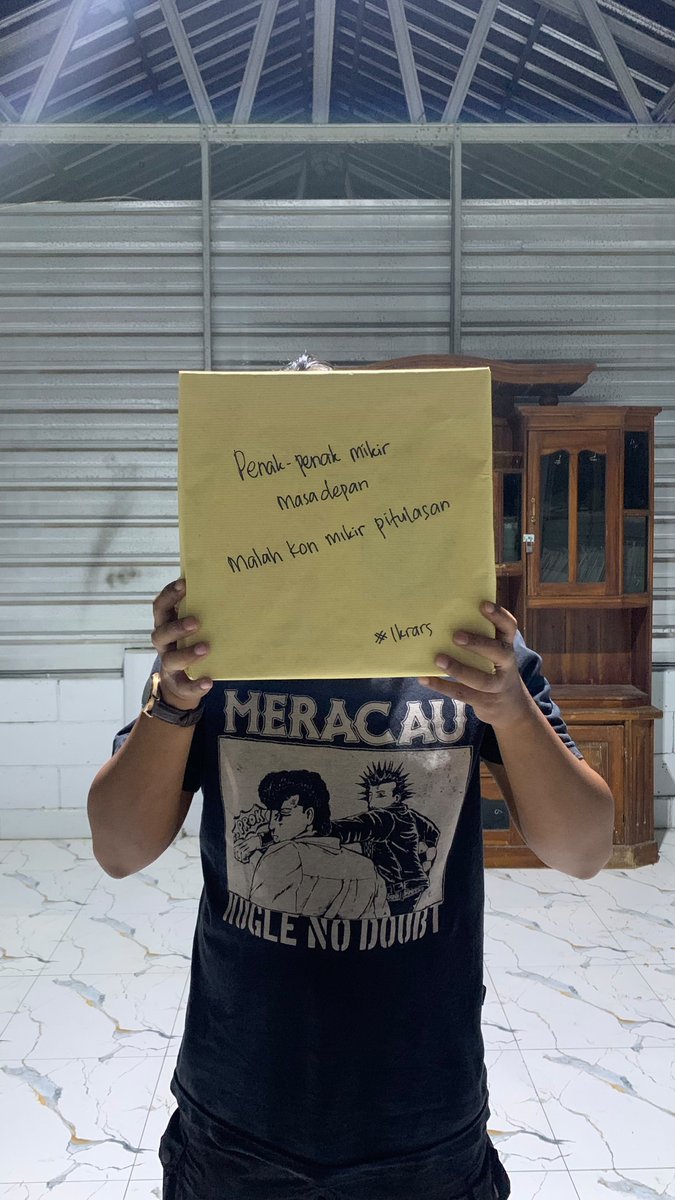 Penak-penak mikir
masadepan
Malah kon mikir pitulasan
※Ikrars
MERACAU
NO DOUBT